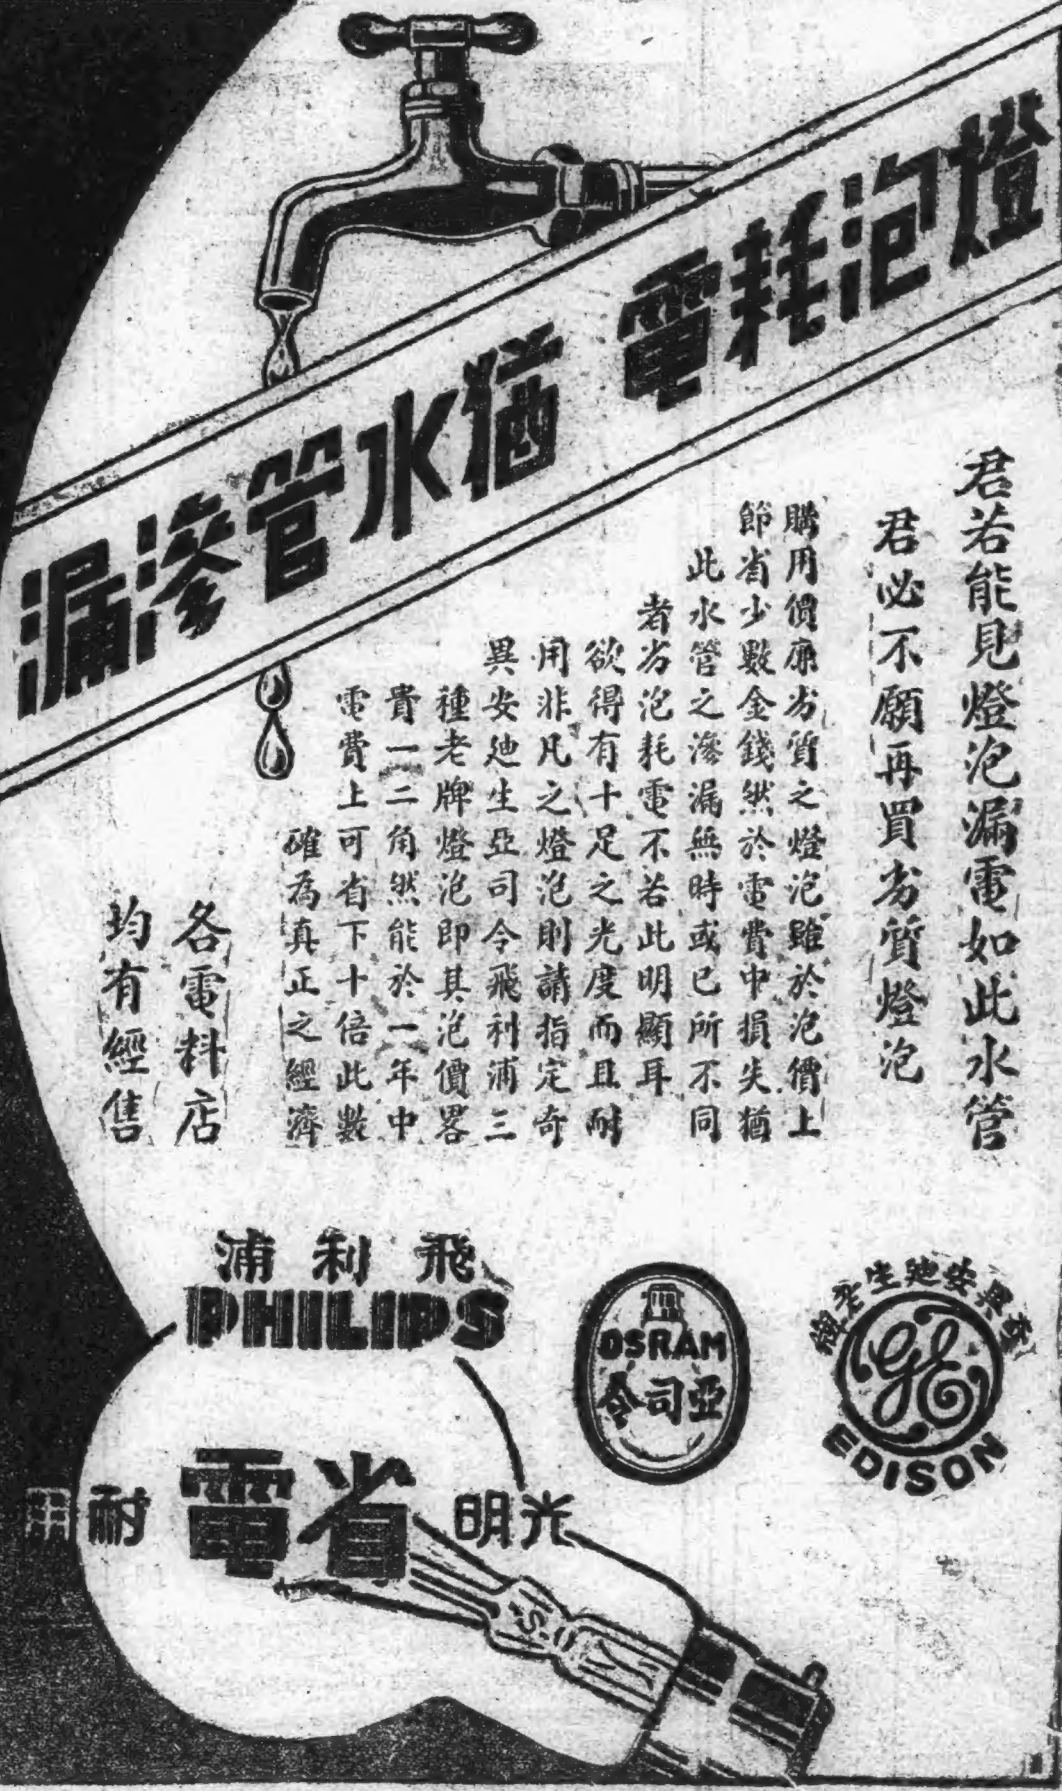 燈泡耗電 猶水管滲漏
君若能見燈泡漏電如此水管
君必不願再買劣質燈泡
購用價廉劣質之燈泡雖於泡價上
節省少數金錢然於電費中損失猶
此水管之滲漏無時或已所不同
者劣泡耗電不若此明顯耳
欲得有十足之光度而且耐
用非凡之燈泡則請指定奇
異安廸生亞司令飛利浦三
種老牌燈泡即其泡價畧
貴一二角然能於一年中
電費上可省下十倍此數
確為真正之經濟
各電料店
均有經售
奇異安廸生老牌
GE
EDISON
OSRAM
亞司令
飛利浦
PHILIPS
光明 省電 耐用